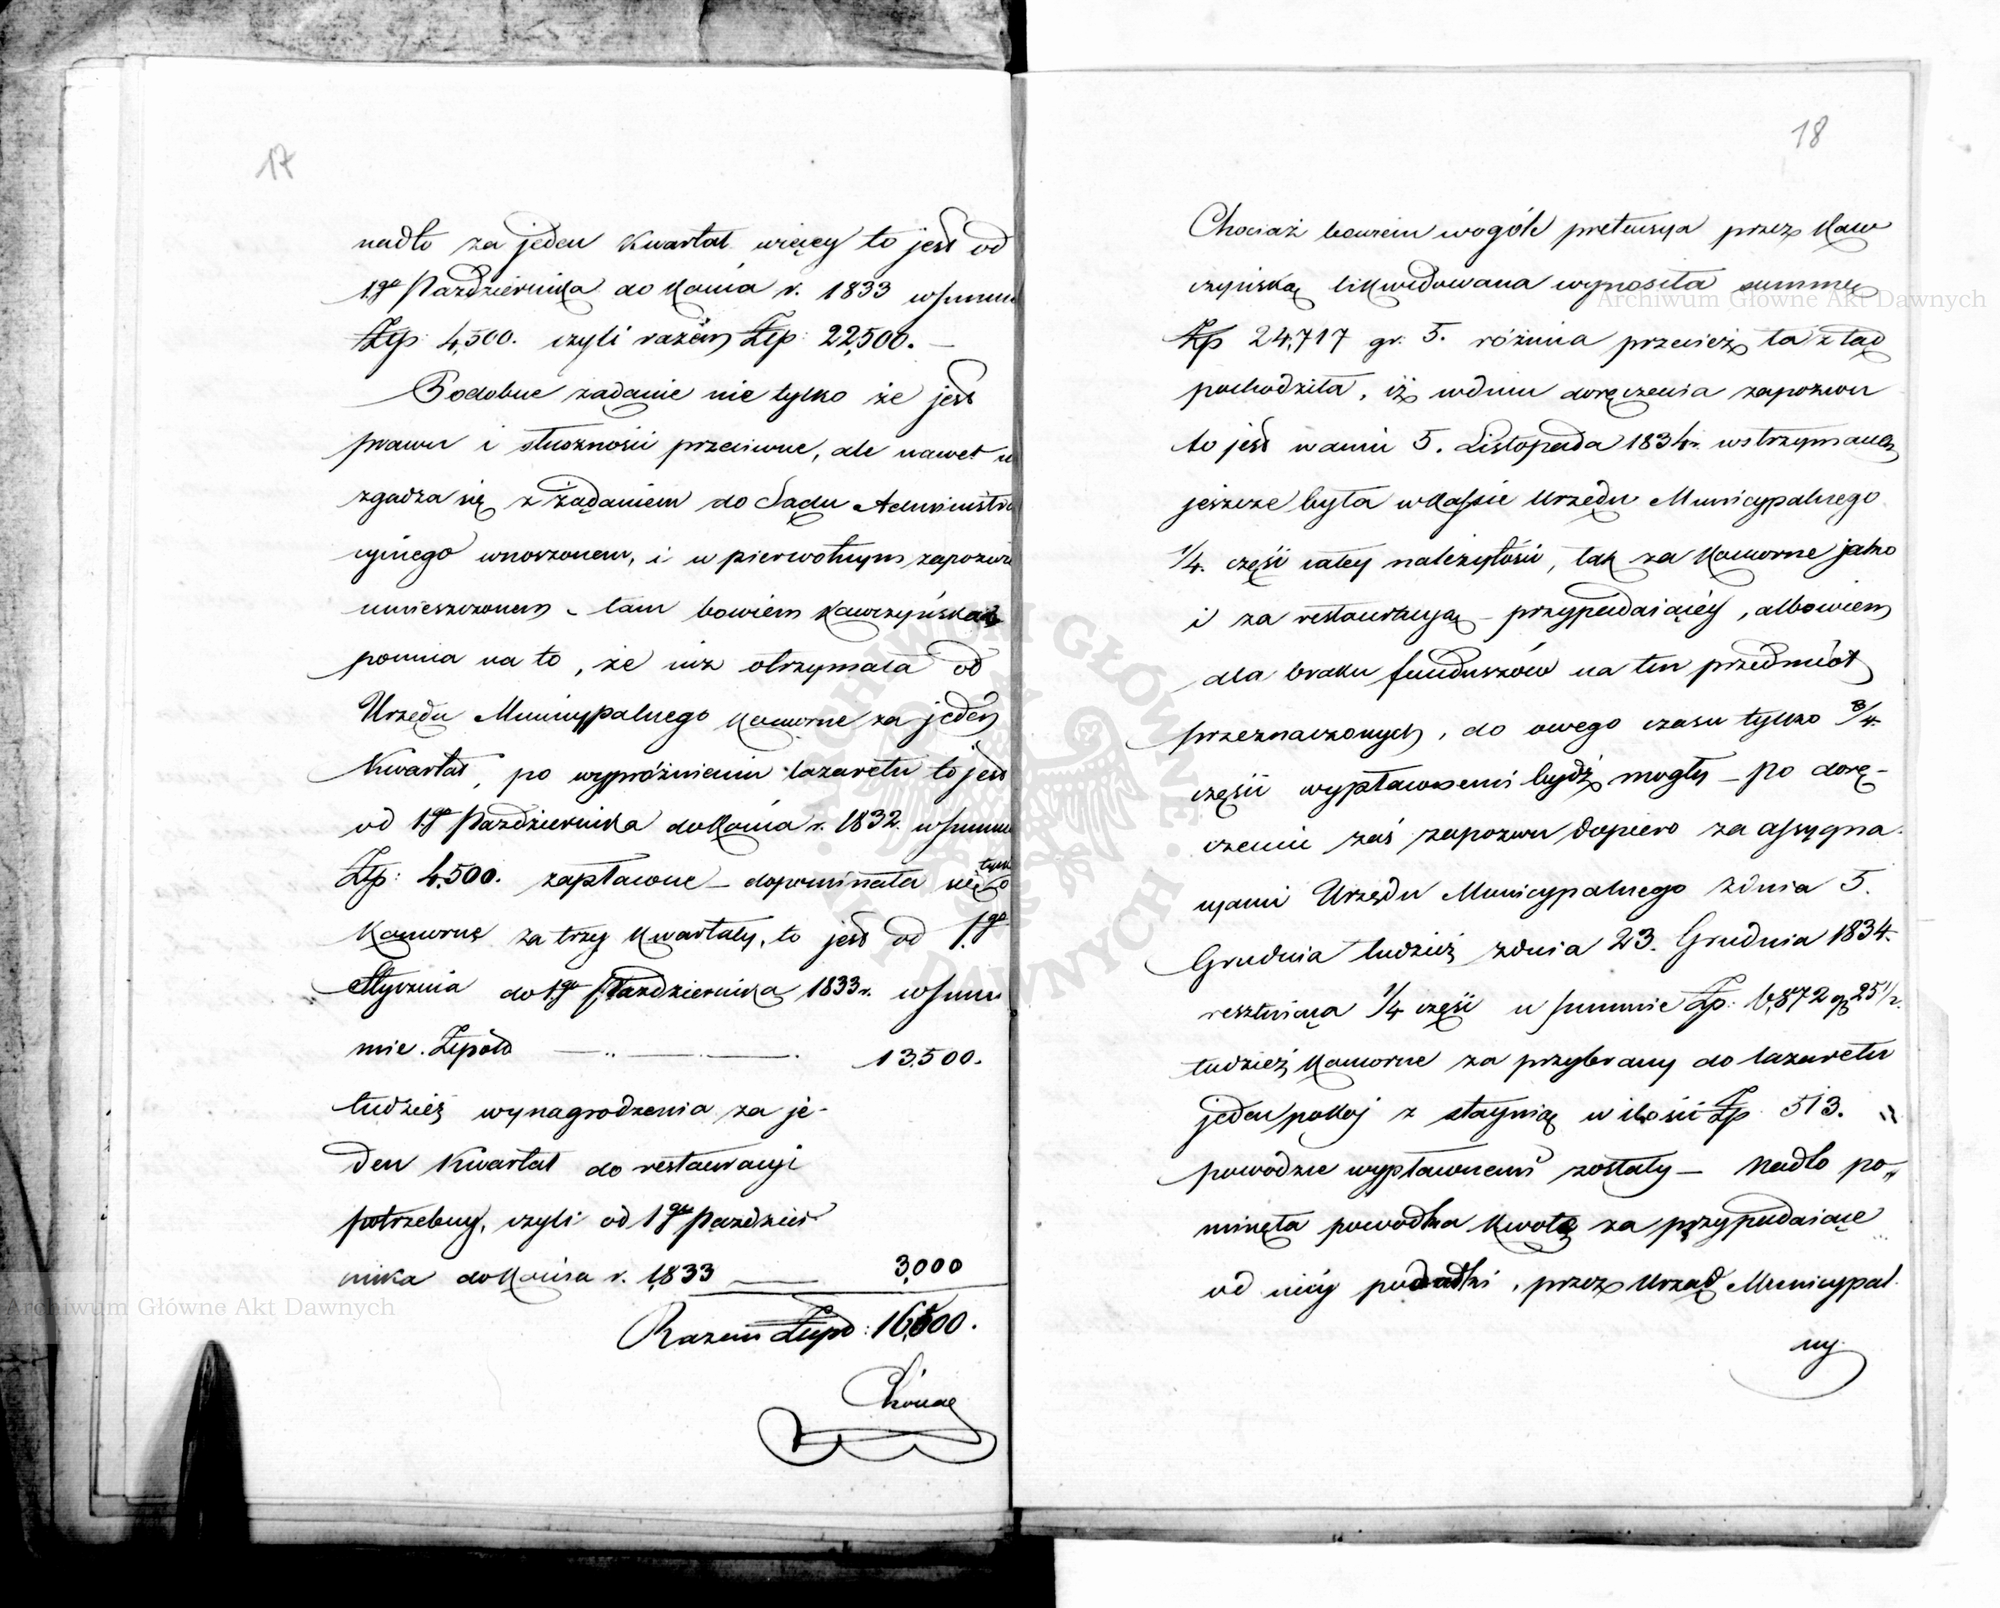 17
nadto za jeden kwartał więcey to jest od
1go Października do końca r. 1833 w summie
Złp: 4,500. czyli razem Złp: 22,500. —
Podobne żądanie nie tylko że jest
prawu i słuszności przeciwne, ale nawet
zgadza się z żądaniem do Sądu Administra
cyinego wnoszonem, i w pierwotnym zapozwie
umieszczonem – tam bowiem Kawczyńska
pomna na to, że już otrzymała od
Urzędu Municypalnego komorne za jeden
kwartał, po wypróżnieniu lazaretu to jest
od 1go Października do końca r. 1832. w summie
Złp: 4,500. zapłacone – dopominała się tylko
komorne za trzy kwartały, to jest od 1.go
Stycznia do 1go Października 1833 r. w sum
mie. Złpol: — " — — . 13,500.
tudzież wynagrodzenia za je-
den kwartał do restauracyi
potrzebny, czyli od 1go Paździer
nika do końca r. 1833 — 3,000
Razem Złpo: 16,500.
Chociaż
18
Chociaż bowiem wogóle pretensya przez Kaw
czyńską likwidowana wynosiła summę
Złp 24,717 gr. 5. różnica przecież ta ztąd
pochodziła, iż w dniu doręczenia zapozwu
to jest w dniu 5. Listopada 1834 r. wstrzymaną
jeszcze była w kassie Urzędu Municypalnego
1/4. część całey należytości, tak za komorne jako
i za restauracyą – przypadaiącéy, albowiem
dla braku funduszów na ten przedmiot
przeznaczonych, do owego czasu tylko 3/4.
części wypłaconemi bydź mogły – po dorę-
czeniu zaś zapozwu dopiero za assygna
cyami Urzędu Municypalnego z dnia 5.
Grudnia tudzież z dnia 23. Grudnia 1834.
resztuiąca 1/4 część w summie Złp: 6,872 gr 25 1/2.
tudzież komorne za przybrany do lazaretu
jeden pokoj z staynią w ilości Złp 513.
powodce wypłaconemi zostały – Nadto po„
minęła powodka kwotę za przypadaiące
od niéy podatki, przez Urząd Municypal
ny
Archiwum Główne Akt Dawnych
Archiwum Główne Akt Dawnych
ARCHIWUM GŁÓWNE AKT DAWNYCH